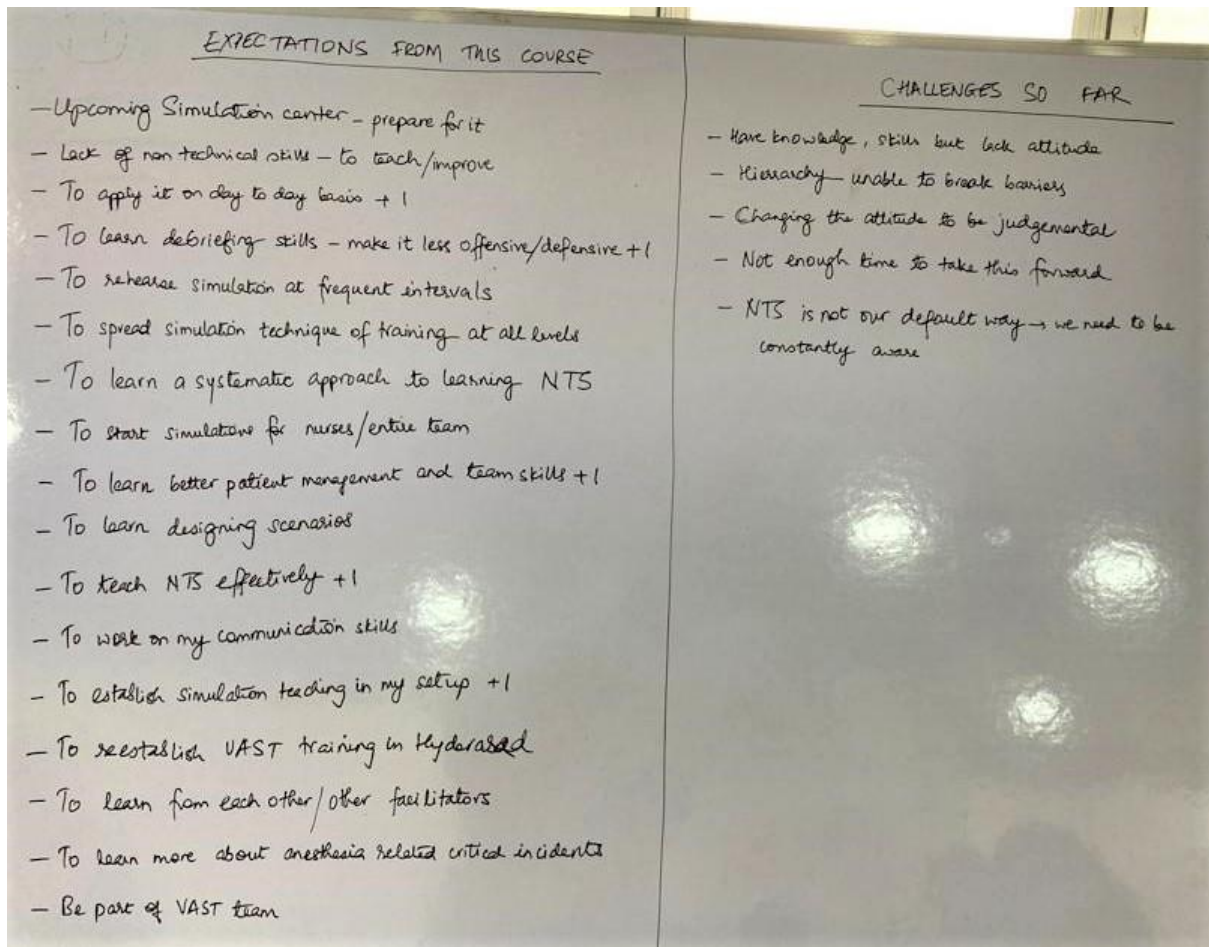 EXPECTATIONS FROM THIS COURSE
— Upcoming Simulation center – prepare for it
— Lack of non technical skills – to teach/improve
— To apply it on day to day basis + 1
— To learn debriefing skills – make it less offensive/defensive +1
— To rehearse simulation at frequent intervals
— To spread simulation technique of training at all levels
— To learn a systematic approach to learning NTS
— To start simulations for nurses/entire team
— To learn better patient management and team skills +1
— To learn designing scenarios
— To teach NTS effectively +1
— To work on my communication skills
— To establish simulation teaching in my setup +1
— To reestablish VAST training in Hyderabad
— To learn from each other/other facilitators
— To learn more about anesthesia related critical incidents
— Be part of VAST team
CHALLENGES SO FAR
— Have knowledge, skills but lack attitude
— Hierarchy – unable to break barriers
— Changing the attitude to be judgemental
— Not enough time to take this forward
— NTS is not our default way → we need to be
constantly aware